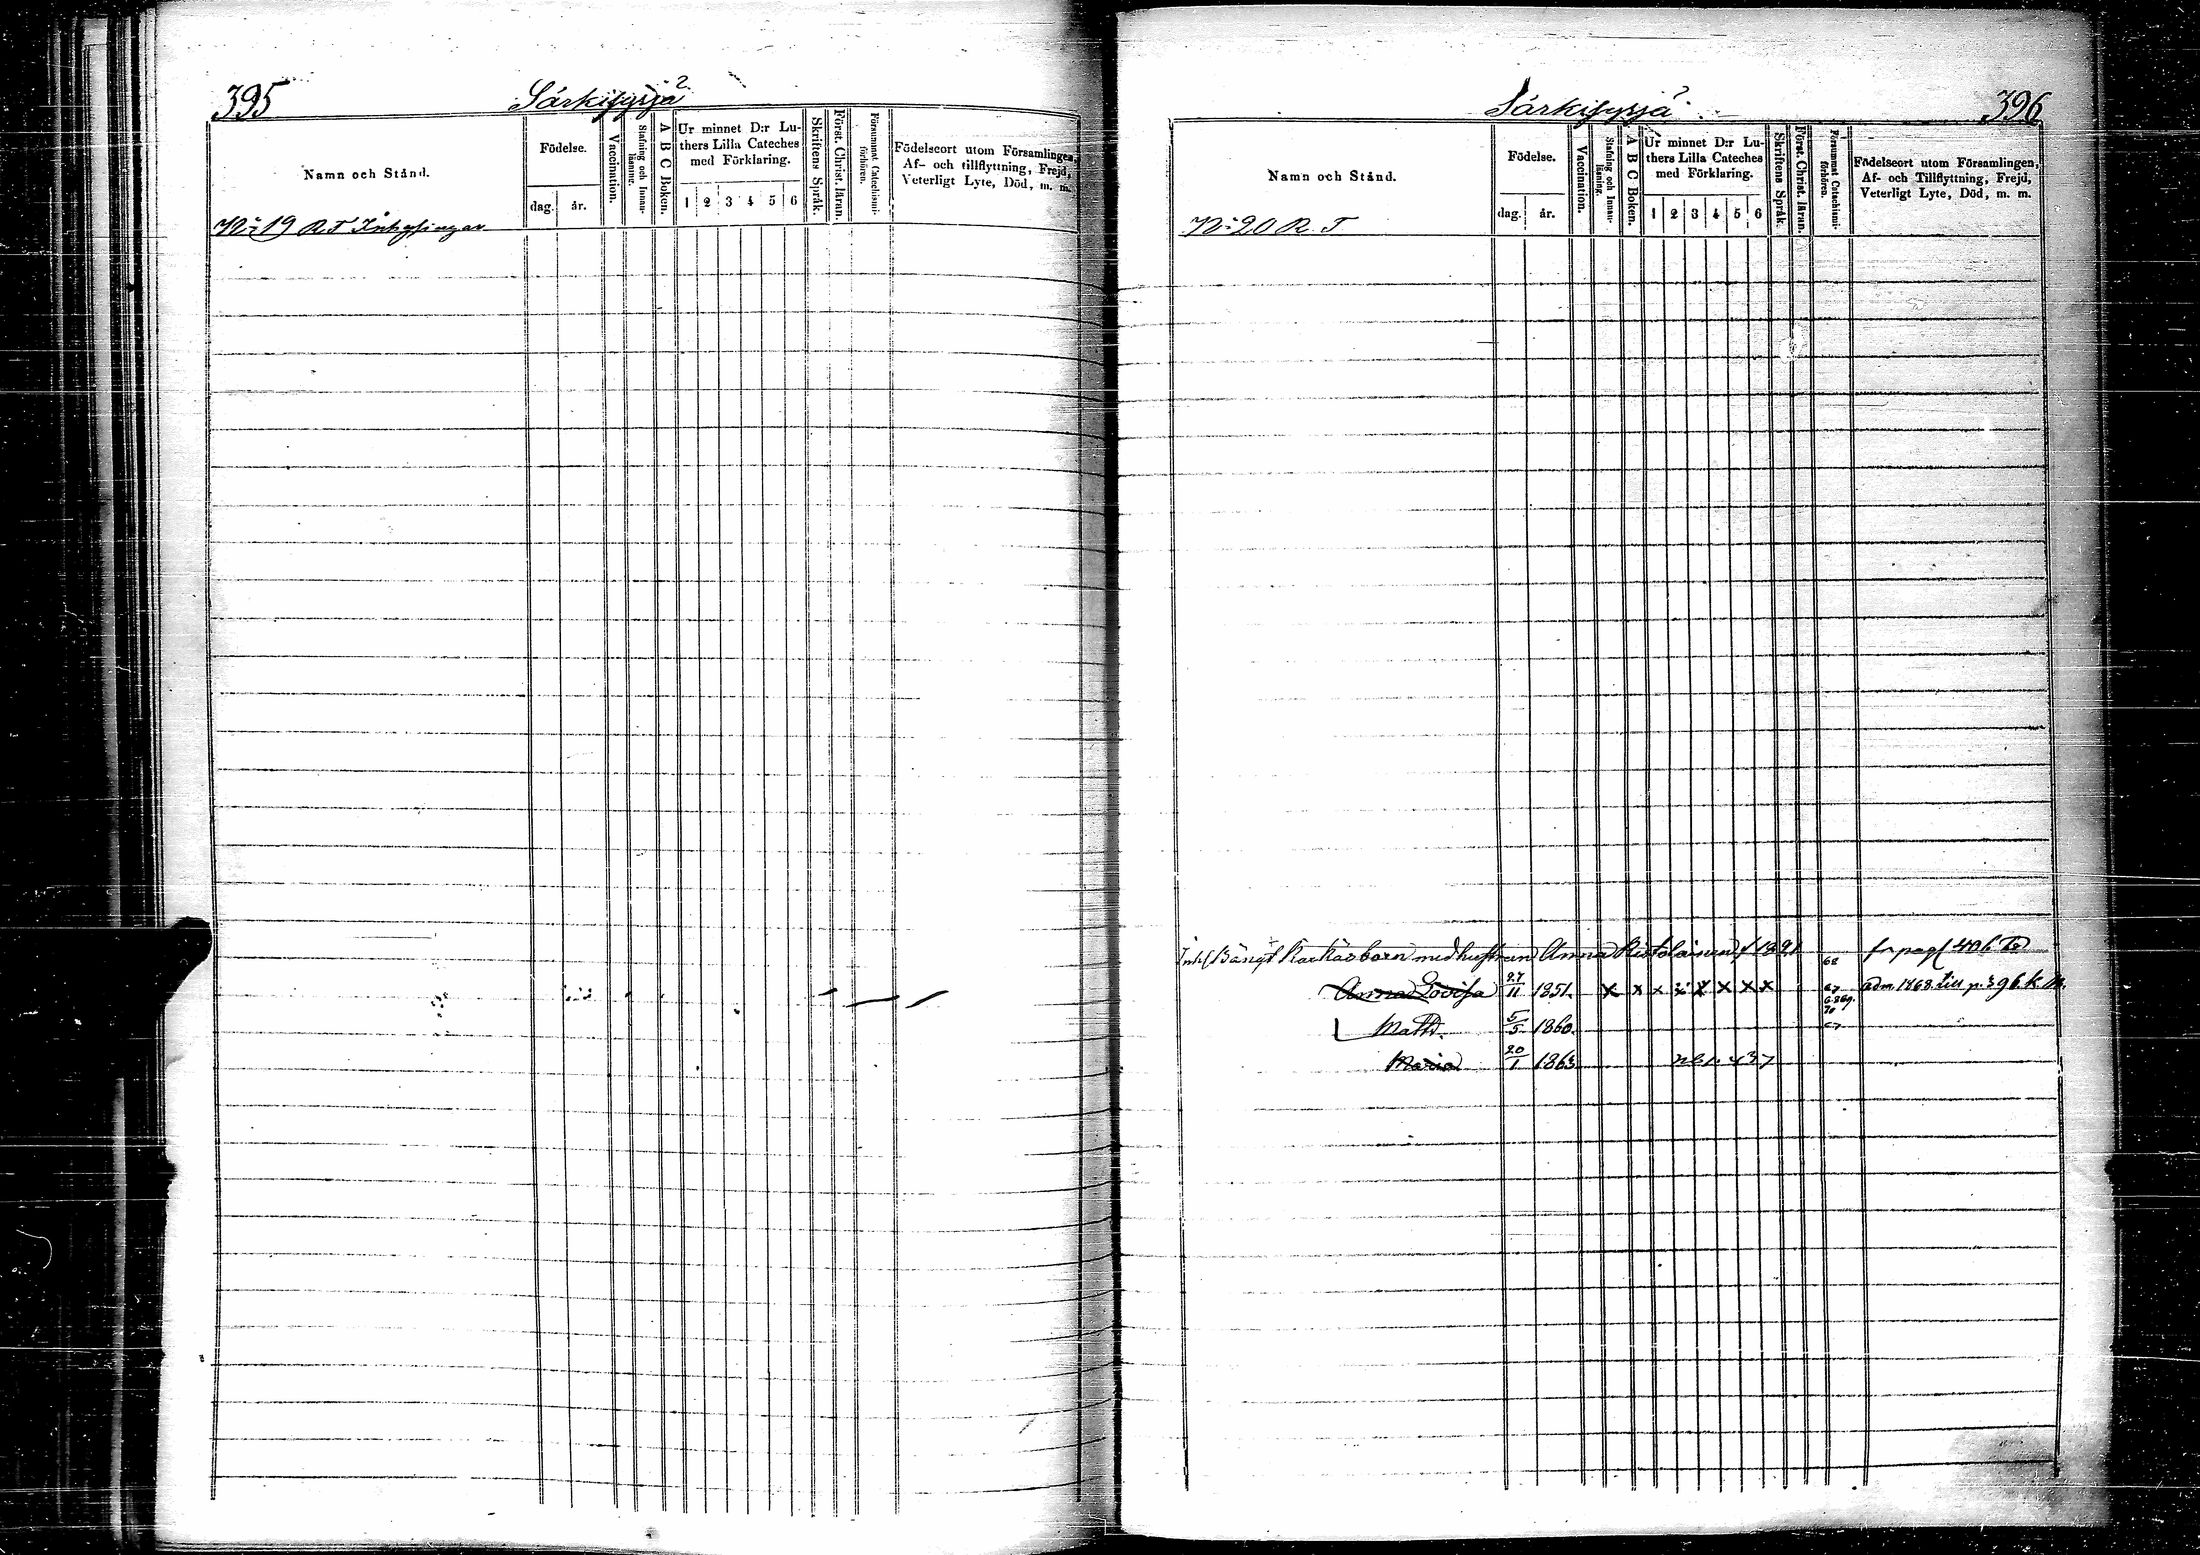 395
Särkisyrjä 2
Namn och Stånd.
Födelse.
dag.
år.
Vaccination.
Stafning och Innan-
läsning.
A B C Boken.
Ur minnet D:r Lu-
thers Lilla Cateches
med Förklaring.
1 2 3 4 5 6
Skriftens Språk.
Först. Christ. läran.
Försummat Catechismi-
förhören.
Födelseort utom Församlingen,
Af- och tillflyttning, Frejd,
Veterligt Lyte, Död, m. m.
No 19 R. T. Inhysingar
396
Särkisyrjä 2
Namn och Stånd.
Födelse.
dag.
år.
Vaccination.
Stafning och Innan-
läsning.
A B C Boken.
Ur minnet D:r Lu-
thers Lilla Cateches
med Förklaring.
1 2 3 4 5 6
Skriftens Språk.
Först. Christ. läran.
Försummat Catechismi-
förhören.
Födelseort utom Församlingen,
Af- och Tillflyttning, Frejd,
Veterligt Lyte, Död, m. m.
No 20 R. T
Inh. Bängt barn med hustrun Anna Ristolainen 68 fr pag 406
Anna Lovisa 27/11 1851. x x x x x x x x 67 adm. 1868. till p. 396. k.
Matts. 5/5 1860. 67
Maria 20/1 1863 p. 437